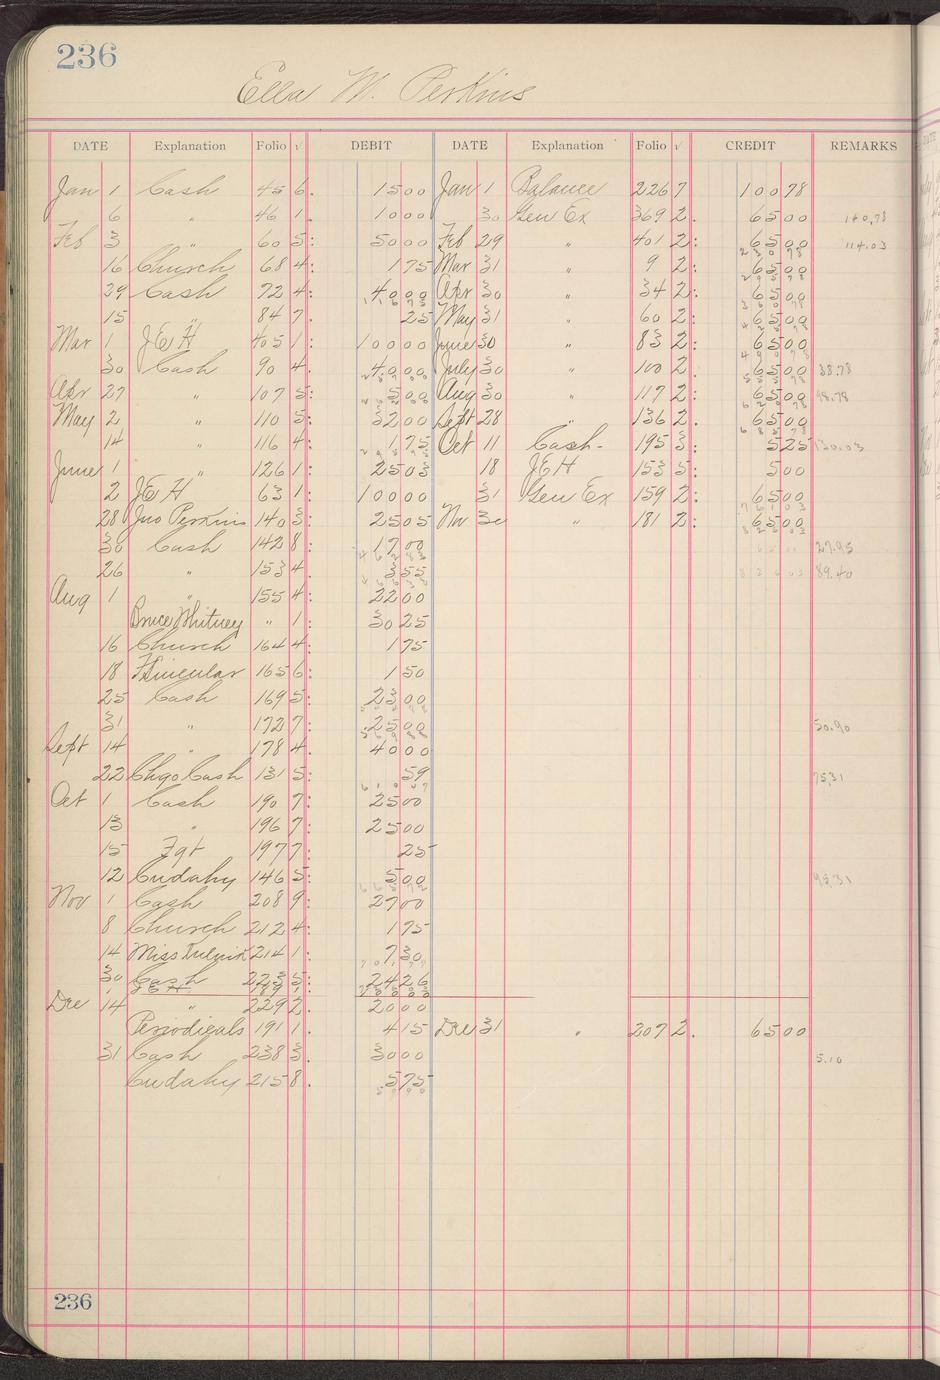 236
Ella M. Perkins
DATE Explanation Folio √ DEBIT DATE Explanation Folio √ CREDIT REMARKS
Jan 1 Cash 45 6. 15 00 Jan 1 Balance 226 7 100 78
6 " 46 1. 10 00 30 Gen Ex 369 2. 65 00 140.78
Feb 3 " 60 5: 50 00 Feb 29 " 401 2: 65 00 114.03
16 Church 68 4: 1 75 Mar 31 " 9 2: 65 00
29 Cash 72 4: 40 00 Apr 30 " 34 2: 65 00
15 " 84 7. 25 May 31 " 60 2: 65 00
Mar 1 J E H 405 1: 100 00 June 30 " 83 2: 65 00
30 Cash 90 4. 40 00 July 30 " 100 2. 65 00 38.78
Apr 27 " 107 5: 5 00 Aug 30 " 117 2: 65 00 98.78
May 2 " 110 5: 32 00 Sept 28 " 136 2. 65 00
14 " 116 4: 1 75 Oct 11 Cash- 195 3: 5 25 130.03
June 1 " 126 1: 25 03 18 J E H 153 5: 5 00
2 J E H 63 1: 100 00 31 Gen Ex 159 2: 65 00
28 Jno Perkins 140 3: 25 05 Nov 30 " 181 2: 65 00
30 Cash 142 8: 17 00 27.95
26 " 153 4. 3 55 89.40
Aug 1 " 155 4: 22 00
Bruce Whitney " 1: 30 25
16 Church 164 4 1 75
18 165 6: 1 50
25 Cash 169 5: 23 00
31 " 172 7: 25 00 50.90
Sept 14 " 178 4. 40 00
22 Chgo Cash 131 5: 59 75.31
Oct 1 Cash 190 7: 25 00
13 " 196 7: 25 00
15 Fgt 197 7: 25
12 Cudahy 146 5: 5 00 95.31
Nov 1 Cash 208 9: 27 00
8 Church 212 4: 1 75
14 Miss 214 1: 7 30
30 Cash 223 5: 24 26
J E H
Dec 14 " 229 2. 20 00
Periodicals 191 1. 4 15 Dec 31 " 207 2. 65 00
31 Cash 238 3. 30 00 5.10
Cudahy 215 8. 5 75
236